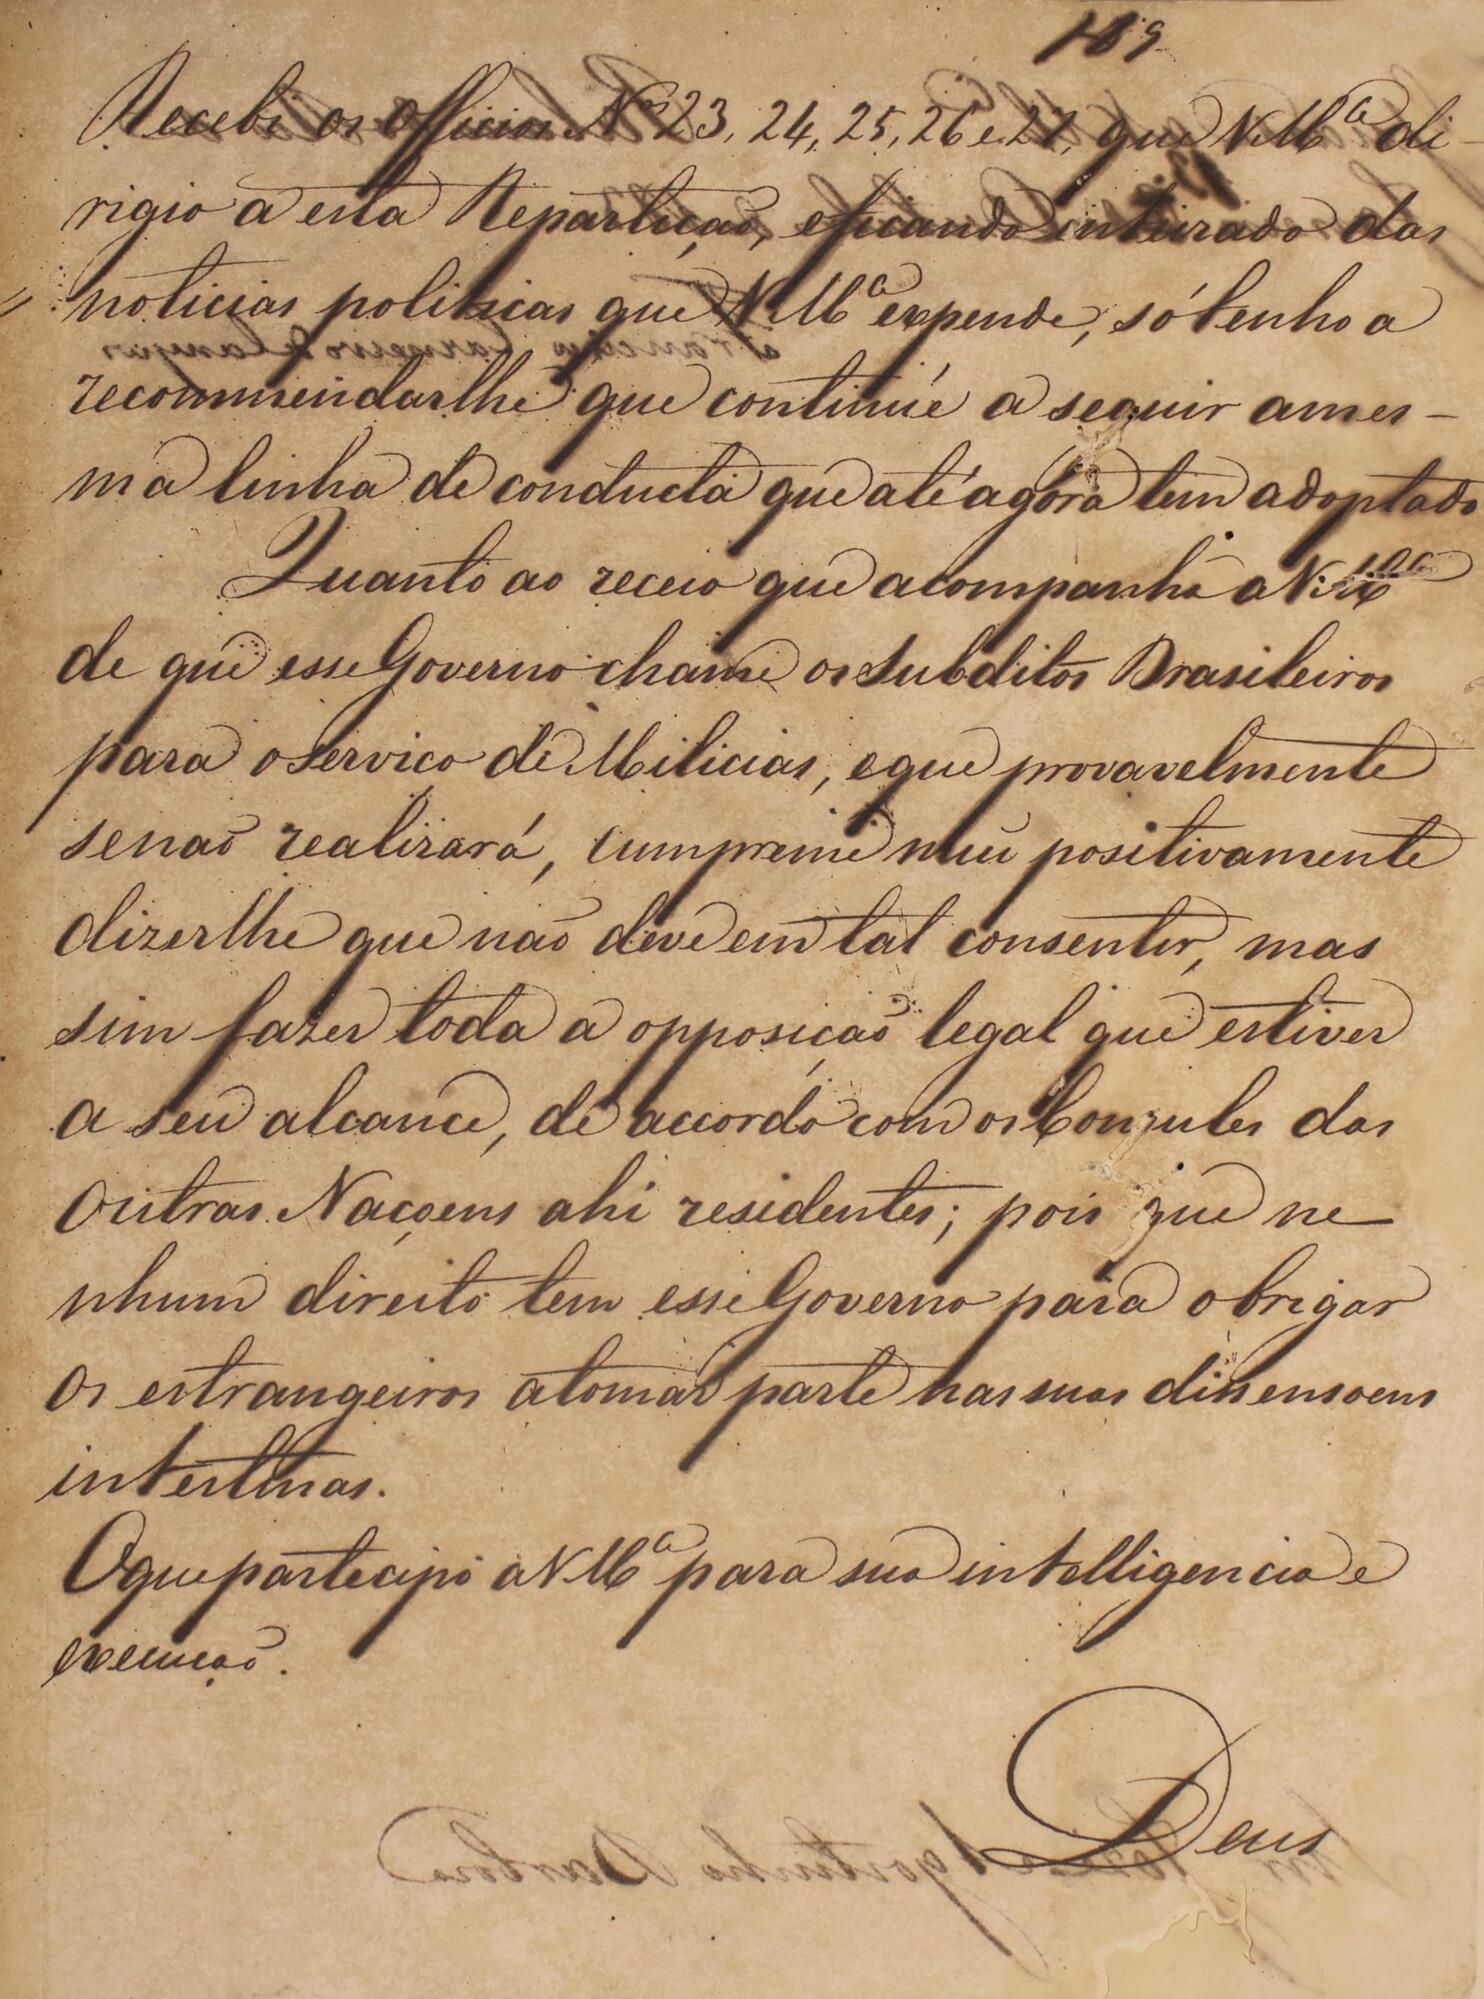 189
Recebi os officios Nos 23, 24, 25, 26 e 27, que V. Mce di-
rigio a esta Repartição, e ficando inteirado das
noticias politicas que V Mce expende, só tenho a
recommendarlhe que continúe a seguir a mes-
ma linha de conducta que até agora tem adoptado
Quanto ao receio que acompanha a V. Mce
de que esse Governo chame os Subditos Brasileiros
para o Serviço de Milicias, e que provavelmente
se naõ realizará, cumpreme mui positivamente
dizerlhe que naõ deve em tal consentir, mas
sim fazer toda a opposiçaõ legal que estiver
a seu alcance, de accordo com os Consules das
Outras Naçoens ahi residentes; pois que ne
nhum direito tem esse Governo para obrigar
os estrangeiros a tomar parte nas suas dissensoens
intestinas.
O que partecipo a V Mce para sua intelligencia e
execuçaõ.
Deus